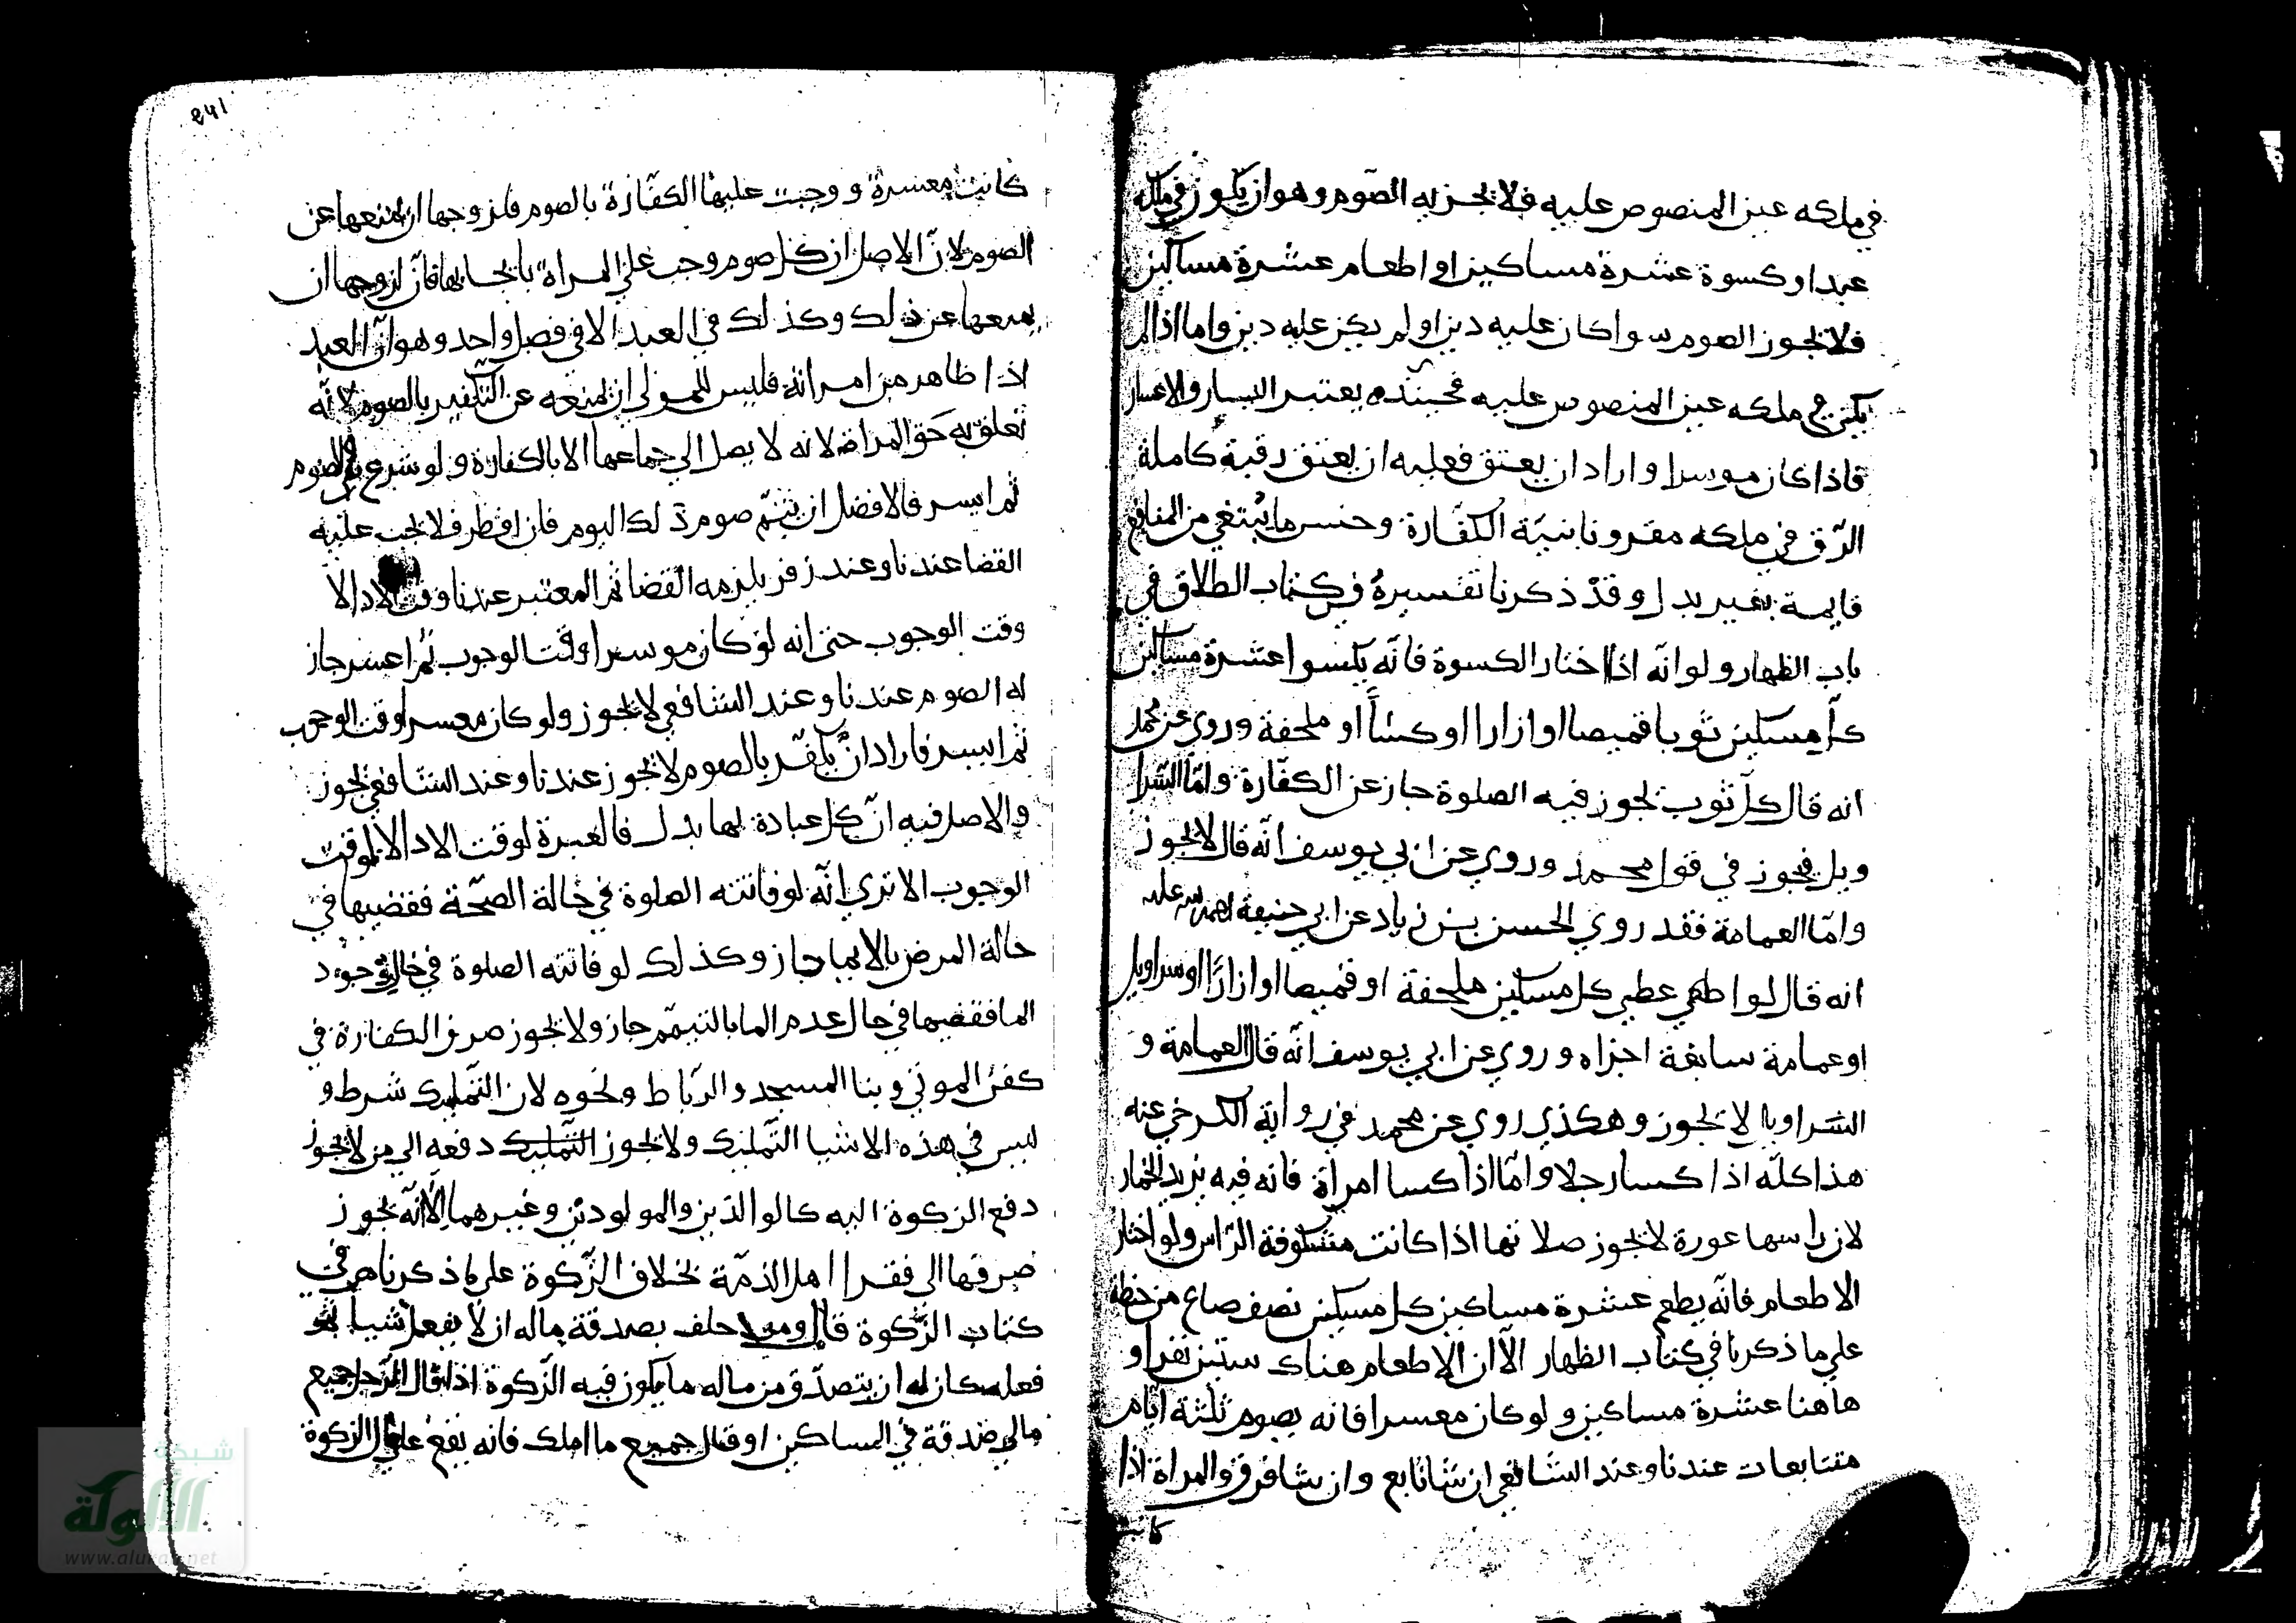 في ملكه عين المنصوص عليه فلا يجزيه الصوم وهو ان يكون في ملكه
عبد او كسوة عشرة مساكين او اطعام عشرة مساكين
فلا يجوز الصوم سوا كان عليه دين او لم يكن عليه دين واما اذا لم
يكن في ملكه عين المنصوص عليه فحينئذ يعتبر اليسار والاعسار
فاذا كان موسرا واراد ان يعتق فعليه ان يعتق رقبة كاملة
الرق في ملكه مقرونا بنية الكفارة وجنس ما يبتغي من المنافع
قايمة بغير بدل وقد ذكرنا تفسيره في كتاب الطلاق في
باب الظهار ولو انه اذا اختار الكسوة فانه يكسوا عشرة مساكين
كل مسكين ثوبا قميصا او ازارا او كسًا او ملحفة وروي عن محمد
انه قال كل ثوب يجوز فيه الصلوة جاز عن الكفارة واما السرا
ويل فيجوز في قول محمد وروي عن ابي يوسف انه قال لا يجوز
واما العمامة فقد روي الحسن بن زياد عن ابي حنيفة رحمة الله عليه
انه قال لو اعطي كل مسكين ملحفة او قميصا او ازارًا او سراويل
او عمامة سابغة اجزاه وروي عن ابي يوسف انه قال العمامة و
السراويل لا يجوز وهكذي روي عن محمد في رواية الكرخي عنه
هذا كله اذا كسا رجلا واما اذا كسا امراة فانه فيه يزيد الخمار
لان راسها عورة لا يجوز صلاتها اذا كانت مكشوفة الراس ولو اختار
الاطعام فانه يطعم عشرة مساكين كل مسكين نصف صاع من حنطة
علي ما ذكرنا في كتاب الظهار الا ان الاطعام هناك ستين نفرا و
هاهنا عشرة مساكين ولو كان معسرا فانه يصوم ثلثة ايام
متتابعات عندنا وعند الشافعي ان شا تابع وان شا فرق والمراة اذا
كانت
241
كانت معسرة ووجبت عليها الكفارة بالصوم فلزوجها ان يمنعها عن
الصوم لان الاصل ان كل صوم وجب علي المراة بايجابها فان لزوجها ان
يمنعها عن ذلك وكذلك في العبد الا في فصل واحد وهو ان العبد
اذا ظاهر من امراته فليس للمولي ان يمنعه عن التكفير بالصوم لانه
تعلق به حق المراة لانه لا يصل الي جماعها الا بالكفارة ولو شرع في الصوم
ثم ايسر فالافضل ان يتم صوم ذلك اليوم فان افطر فلا يجب عليه
القضا عندنا وعند زفر يلزمه القضا ثم المعتبر عندنا وقت الادا لا
وقت الوجوب حتي انه لو كان موسرا وقت الوجوب ثم اعسر جاز
له الصوم عندنا وعند الشافعي لا يجوز ولو كان معسرا وقت الوجوب
ثم ايسر فاراد ان يكفر بالصوم لا يجوز عندنا وعند الشافعي يجوز
والاصل فيه ان كل عبادة لها بدل فالعبرة لوقت الادا لا لوقت
الوجوب الا تري انه لو فاتته الصلوة في حالة الصحة فقضيها في
حالة المرض بالايما جاز وكذلك لو فاتته الصلوة في حالة وجود
الما فقضيها في حال عدم الما بالتيمم جاز ولا يجوز صرف الكفارة في
كفن الموتي وبنا المسجد والرباط ونحوه لان التمليك شرط و
ليس في هذه الاشيا التمليك ولا يجوز التمليك دفعه الي من لا يجوز
دفع الزكوة اليه كالوالدين والمولودين وغيرهما الا انه يجوز
صرفها الي فقرا اهل الذمة بخلاف الزكوة علي ما ذكرناه في
كتاب الزكوة قال ومن حلف بصدقة ماله ان لا يفعل شيا ثم
فعله كان له ان يتصدق من ماله ما يكون فيه الزكوة اذا قال الرجل جميع
مالي صدقة في المساكين او قال جميع ما املك فانه يقع علي مال الزكوة
شبكة
الألوكة
www.alukah.net